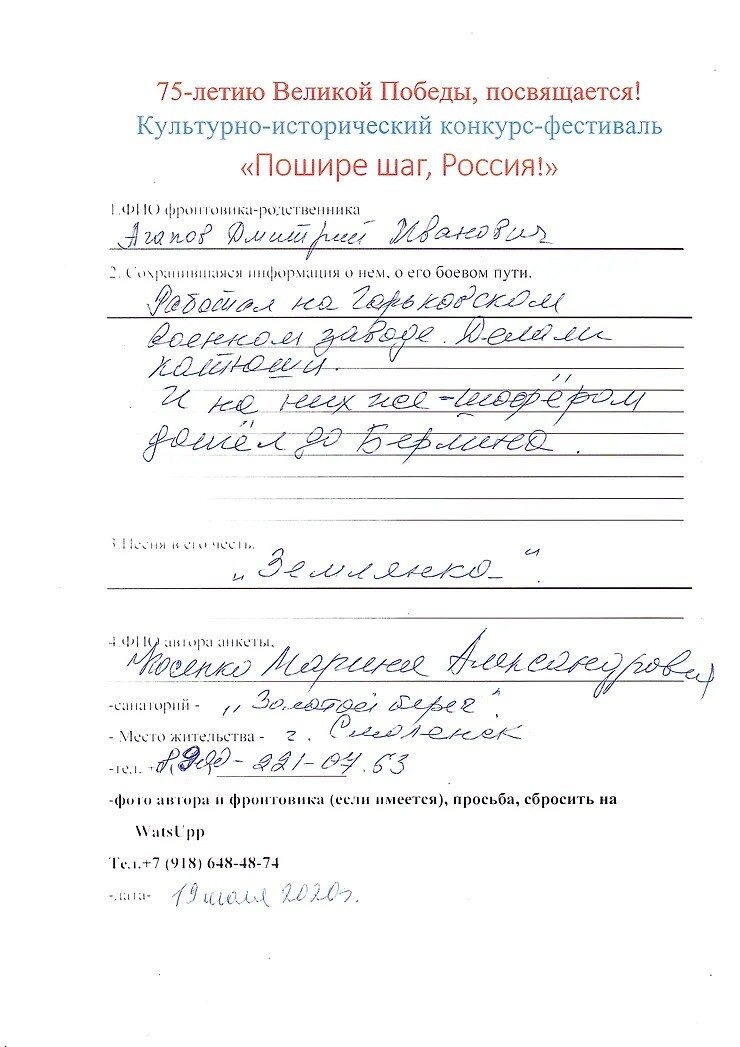 75-летию Великой Победы, посвящается!
Культурно-исторический конкурс-фестиваль
«Пошире шаг, Россия!»
1.ФИО фронтовика-родственника
Агапов Дмитрий Иванович
2. Сохранившаяся информация о нем, о его боевом пути.
Работал на Горьковском
военном заводе. Делали
катюши.
И на них же - шофёром
дошёл до Берлина.
3.Песня в его честь.
„Землянка“.
4.ФИО автора анкеты,
Марина Александрович
-санаторий - „Золотой берег“.
- Место жительства - г. Смоленск
-тел. +8(900) - 221-07.53
-фото автора и фронтовика (если имеется), просьба, сбросить на
WatsUpp
Тел.+7 (918) 648-48-74
-дата- 19 июля 2020г.